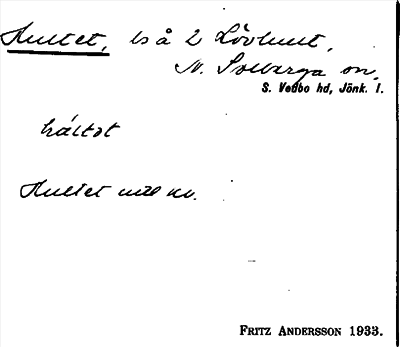 Hultet, ls å 2 Lövhult,
N. Solberga sn,
S. Vedbo hd, Jönk. l.
hŭltət
Hultet
FRITZ ANDERSSON 1933.